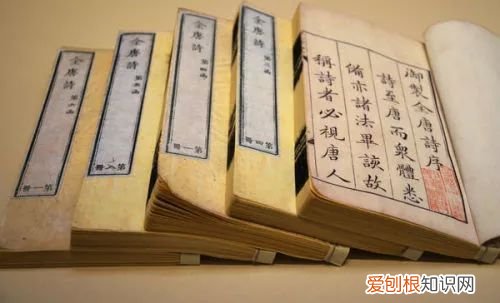 御製全唐詩序
詩至唐而衆體悉
備亦諸法畢該故
稱詩者必視唐人
全唐詩
第三函
第四冊
全唐詩
第四函
第一冊
全唐詩
第五函
第八冊
全唐詩
第六函
第一冊
爱刨根知识网